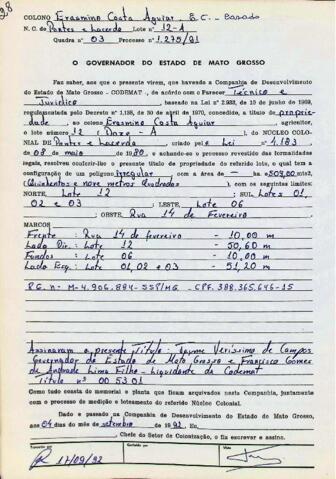 28
COLONO Erasmino Costa Aguiar E.C. - Casado
N. C. de Pontes e Lacerda Lote nº 12-A
Quadra nº 03 Processo nº 1.275/91
O GOVERNADOR DO ESTADO DE MATO GROSSO
Faz saber, aos que o presente virem, que havendo a Companhia de Desenvolvimento
do Estado de Mato Grosso - CODEMAT -, de acôrdo com o Parecer Técnico e
Jurídico, baseado na Lei nº 2.933, de 13 de junho de 1969,
regulamentada pelo Decreto nº 1.138, de 30 de abril de 1970, concedido, a título de proprie-
dade, ao colono Erasmino Costa Aguiar agricultor,
o lote número 12 ( Doze - A ) do NÚCLEO COLO-
NIAL DE Pontes e Lacerda criado pela Lei 4.183
de 08 de maio de 1980 e achando-se o processo revestido das formalidades
legais, resolveu conferir-lhe o present título de propriedade do referido lote, o qual tem a
configuração de um polígono irregular com a área de — ha 509,00 m²
(Quinhentos e nove metros quadrados) com os seguintes limites:
NORTE, Lote 12 SUL Lotes 01,
02 e 03; LESTE, Lote 06
; OESTE, Rua 14 de Fevereiro
MARCOS
Frente: Rua 14 de fevereiro - 10,00 m
Lado Dir.: Lote 12 - 50,60 m
Fundos: Lote 06 - 10,00 m
Lado Esq.: Lote 01, 02 e 03 - 51,20 m
R.G. nº M-4.906.884-SSP/MG - CPF. 388.365.646-15
Assinaram o presente Título: Jayme Veríssimo de Campos
Governador do Estado de Mato Grosso e Francisco Gomes
de Andrade Lima Filho - Liquidante da Codemat
Título nº 005301
Como tudo consta do memorial e planta que ficam arquivados nesta Companhia, juntamente
com o processo de medição e loteamento do referido Núcleo Colonial.
Dado e passado na Companhia de Desenvolvimento do Estado do Mato Grosso,
aos 04 dias do mês de setembro de 1992. Eu
, Chefe do Setor de Colonização, o fiz escrever e assino.
17/09/92